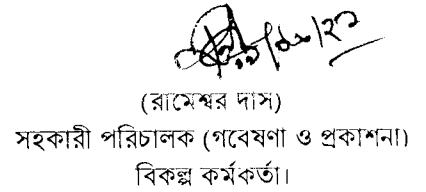 (রামেশ্বর দাস)
সহকারী পরিচালক (গবেষণা ও প্রকাশনা)
বিকল্প কর্মকর্তা।